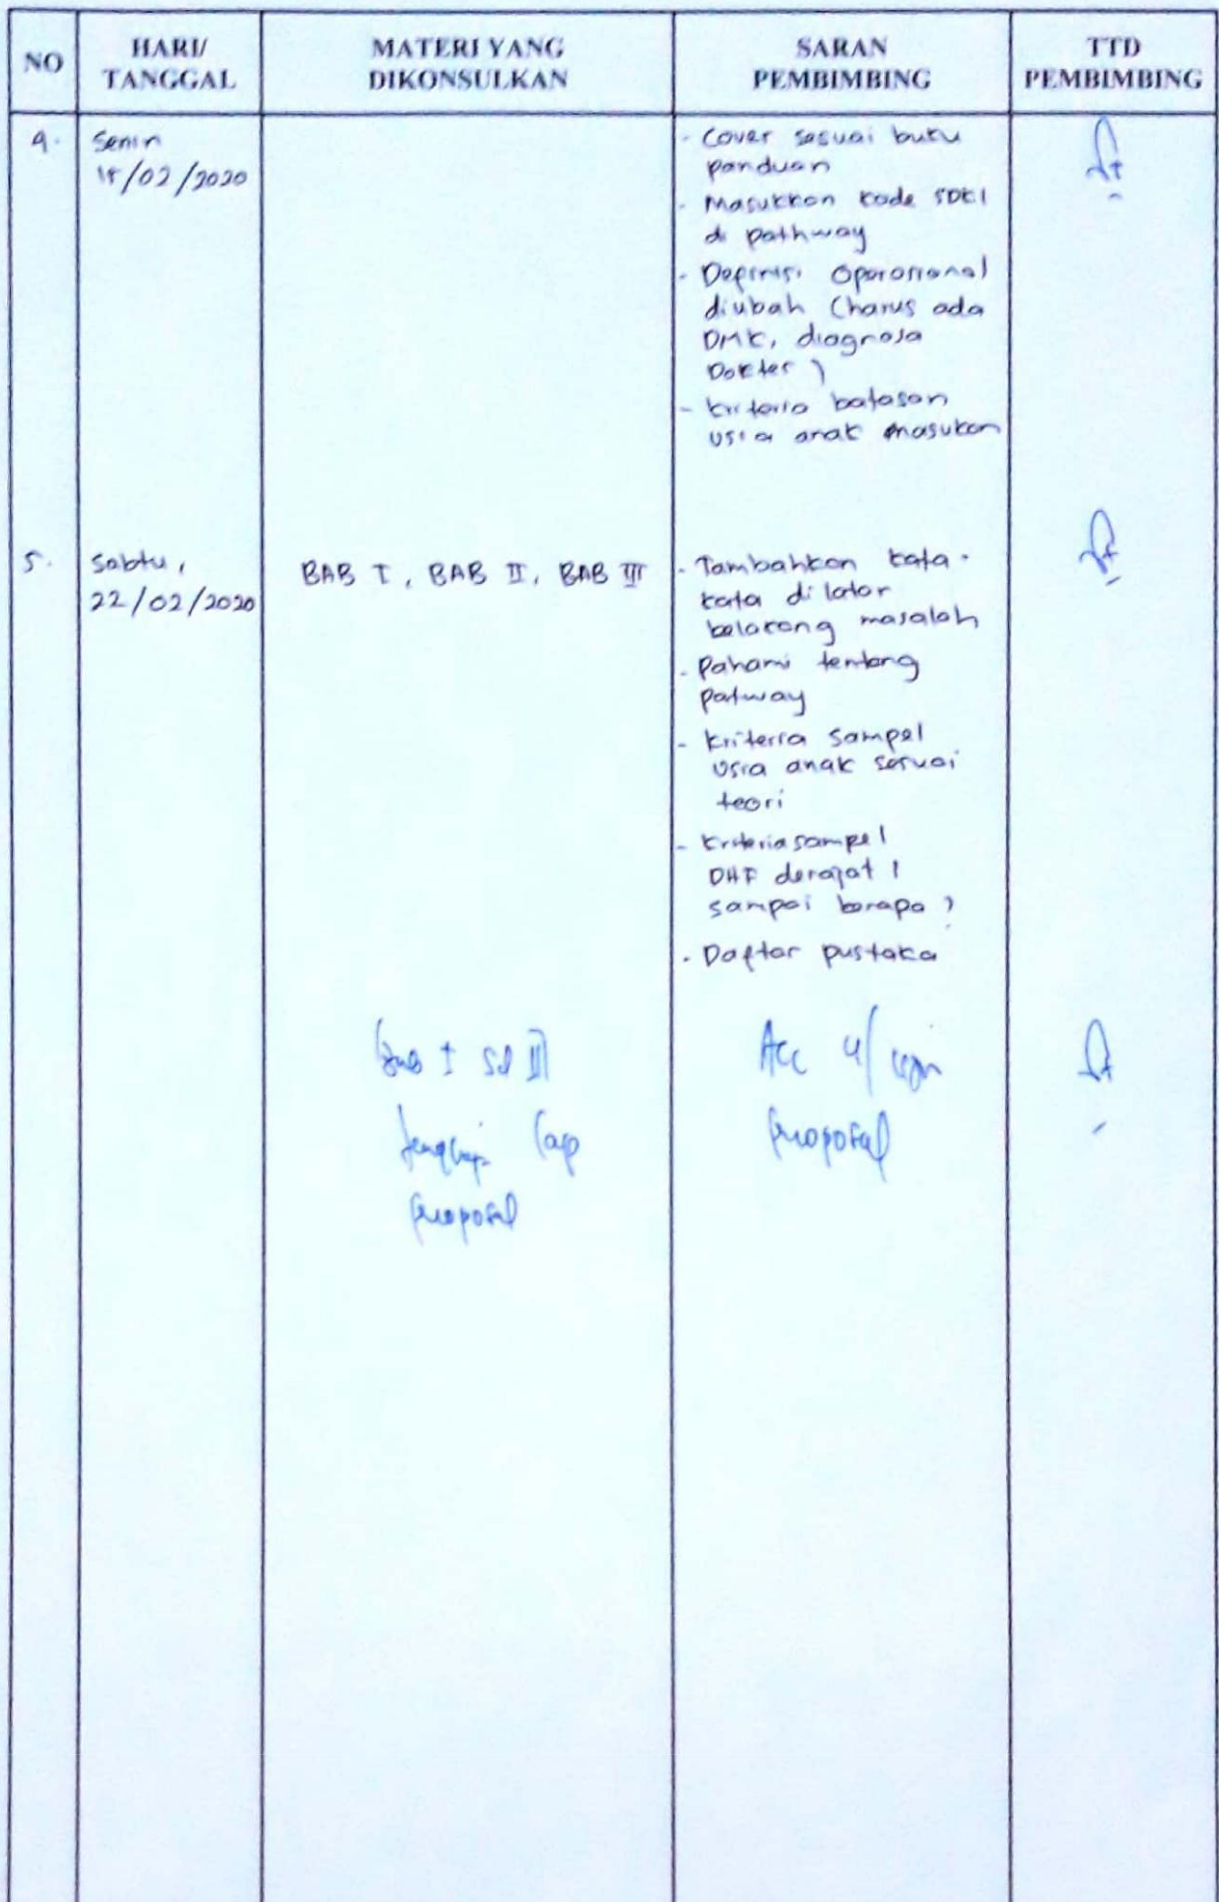 NO
HARI/
TANGGAL
MATERI YANG
DIKONSULKAN
SARAN
PEMBIMBING
TTD
PEMBIMBING
4.
Senin
/02/2020
- Cover sesuai buku
panduan
- Masukkan kode SDKI
di pathway
- Definisi Operasional
diubah (harus ada
DMK, diagnosa
Dokter)
- Kriteria batasan
usia anak masukan
5.
Sabtu,
22/02/2020
BAB I, BAB II, BAB III
- Tambahkan kata-
kata di lator
belakang masalah
- Pahami tentang
patway
- Kriteria Sampel
Usia anak sesuai
teori
- Kriteria sampel
DHF derajat 1
sampai berapa ?
- Daftar pustaka
I sd III
proposal
Acc u/
proposal